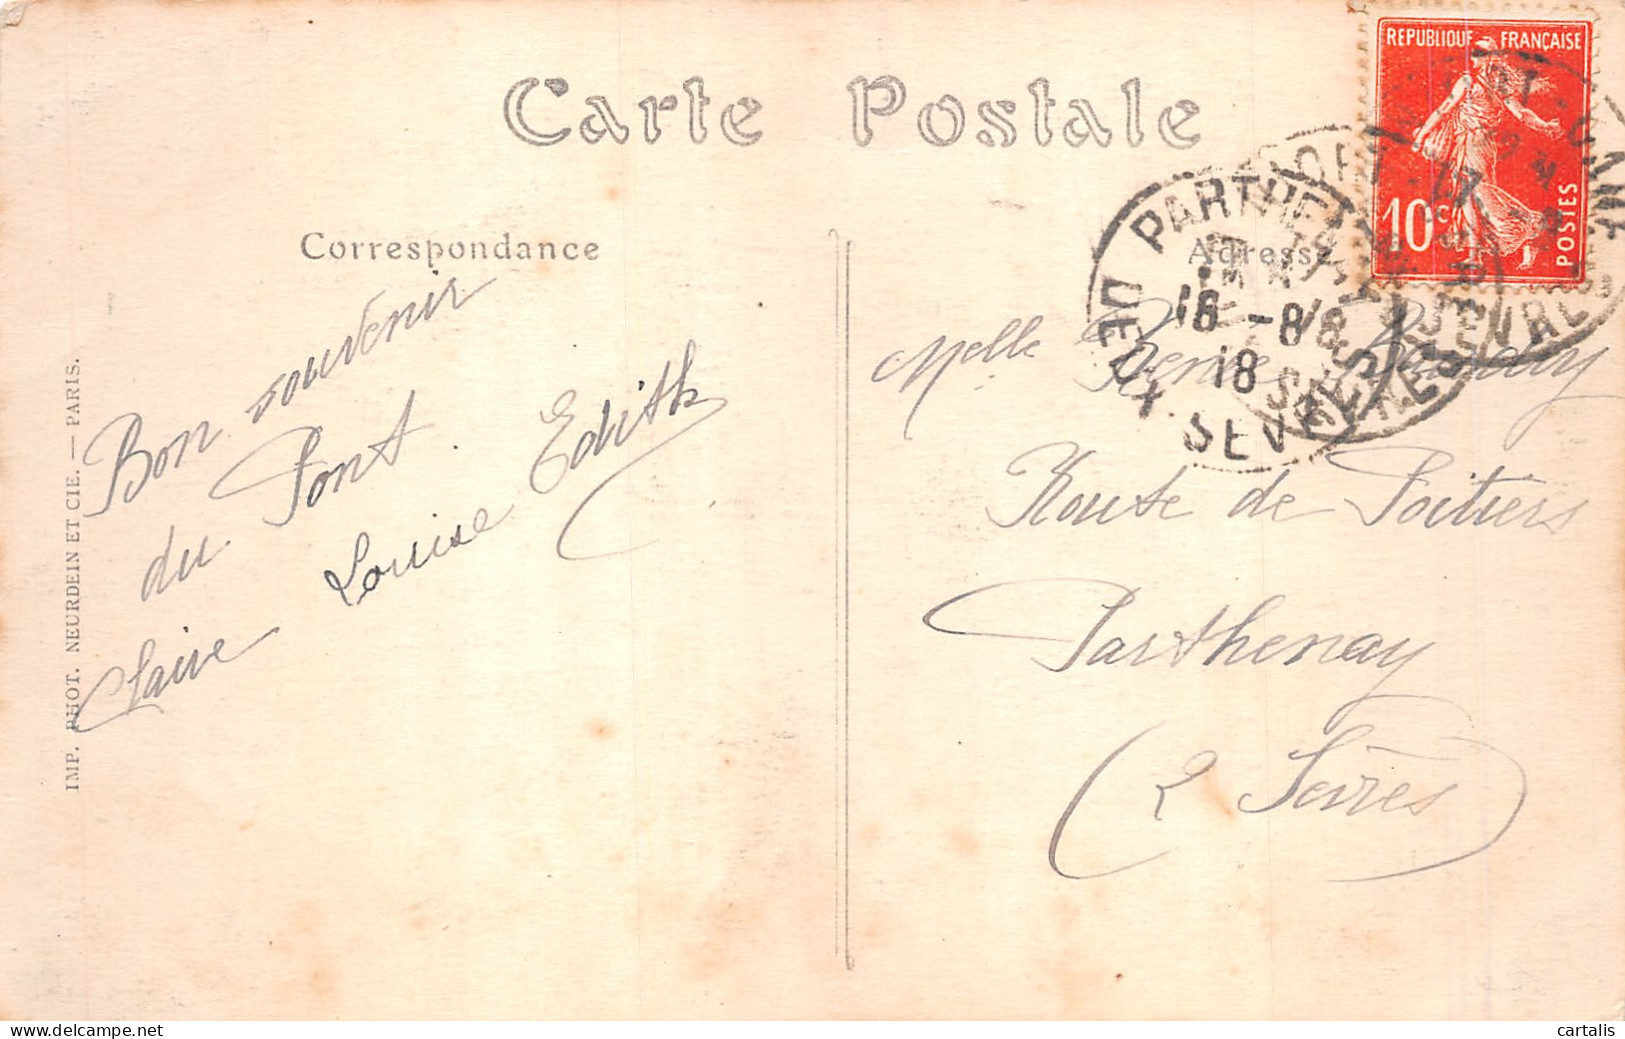 Carte Postale
REPUBLIQUE FRANÇAISE
10c POSTES
PARTHENAY
DEUX SEVRES
16 -8
18
Correspondance
Adresse
Bon souvenir
du Pont
Claire Louise Edith
Melle
Route de Poitiers
Parthenay
(2 Sèvres)
IMP. PHOT. NEURDEIN ET CIE. — PARIS.
cartalis